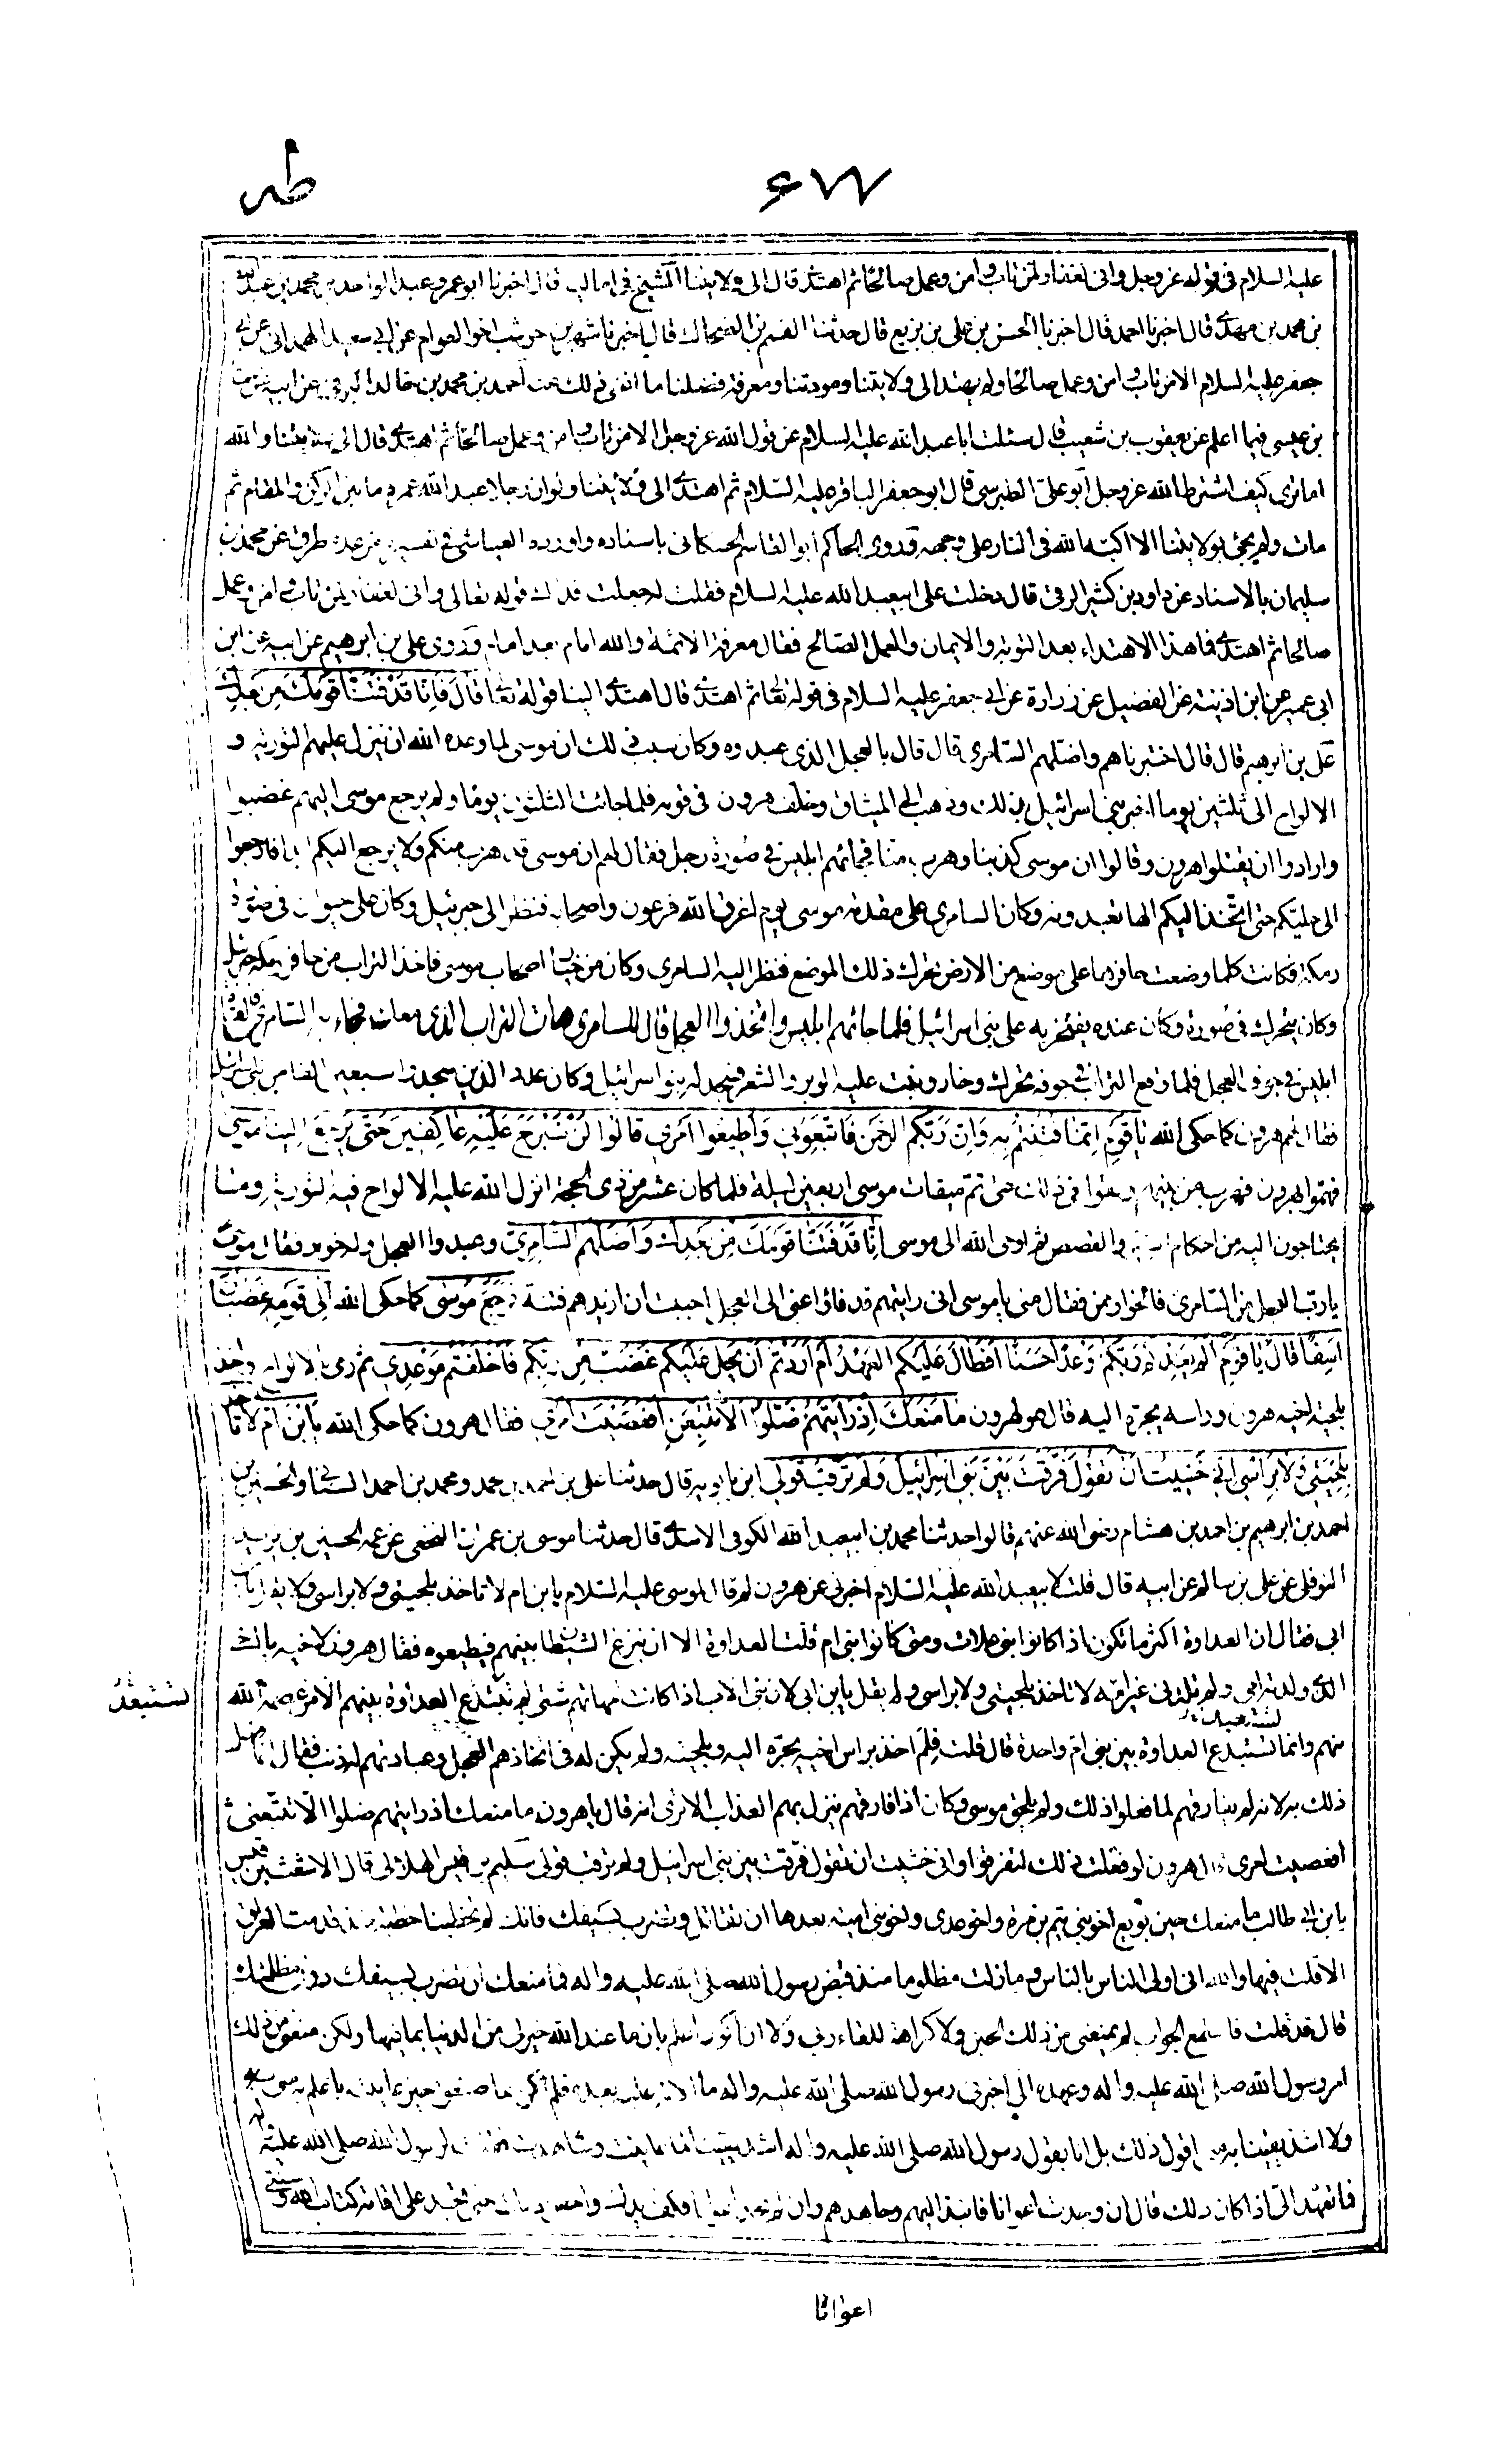 ٦٧٧
طه
عليه السلام في قوله عز وجل واني لغفار لمن تاب وامن وعمل صالحا ثم اهتدى قال الى ولايتنا الشيخ في اماليه قال اخبرنا ابو عمرو عبد الواحد بن محمد بن عبد الله
بن محمد بن مهدي قال اخبرنا احمد قال اخبرنا الحسن بن علي بن بزيع قال حدثنا القسم بن الضحاك قال اخبرنا شهر بن حوشب اخو العوام عن ابي سعيد الهمداني عن ابي
جعفر عليه السلام الا من تاب وامن وعمل صالحا ولم يهتد الى ولايتنا ومودتنا ومعرفة فضلنا ما اغنى ذلك عنه احمد بن محمد بن خالد البرقي عن ابيه عن
بن عيسى فيما اعلم عن يعقوب بن شعيب قال سئلت ابا عبد الله عليه السلام عن قول الله عز وجل الا من تاب وامن وعمل صالحا ثم اهتدى قال الى ولايتنا والله
اما ترى كيف اشترط الله عز وجل ابو علي الطبرسي قال ابو جعفر الباقر عليه السلام ثم اهتدى الى ولايتنا ولو ان رجلا عبد الله عمره ما بين الركن والمقام ثم
مات ولم يجئ بولايتنا الا اكبه الله في النار على وجهه وروى الحاكم ابو القاسم الحسكاني باسناده واورده العياشي في تفسيره من عدة طرق عن محمد بن
سليمان بالاسناد عن داود بن كثير الرقي قال دخلت على ابيعبد الله عليه السلام فقلت له جعلت فداك قوله تعالى واني لغفار لمن تاب وامن وعمل
صالحا ثم اهتدى فما هذا الاهتداء بعد التوبة والايمان والعمل الصالح فقال معرفة الائمة والله امام بعد امام وروى علي بن ابرهيم عن ابيه عن ابن
ابي عمير عن ابن اذينة عن الفضيل عن زرارة عن ابي جعفر عليه السلام في قوله ثم اهتدى قال اهتدى الينا قوله تعالى قَالَ فَاِنَّا قَدْ فَتَنَّا قَوْمَكَ مِنْ بَعْدِكَ
علي بن ابرهيم قال قال اختبرناهم واضلهم السامري قال قال بالعجل الذي عبدوه وكان سبب ذلك ان موسى لما وعده الله ان ينزل عليهم التورية و
الالواح الى ثلثين يوما اخبر بني اسرائيل بذلك وذهب الى الميثاق وخلف هرون في قومه فلما جائت الثلثون يوما ولم يرجع موسى اليهم غضبوا
وارادوا ان يقتلوا هرون وقالوا ان موسى كذبنا وهرب منا فجائهم ابليس في صورة رجل فقال لهم ان موسى قد هرب منكم ولا يرجع اليكم ابدا فاجمعوا
الى حليتكم حتى اتخذ لكم الها تعبدونه وكان السامري على مقدمة موسى يوم اغرق الله فرعون واصحابه فنظر الى جبرئيل وكان على حيوان في صورة
رمكة فكانت كلما وضعت حافرها على موضع من الارض تحرك ذلك الموضع فنظر اليه السامري وكان من خيار اصحاب موسى فاخذ التراب من حافر رمكة جبرئيل
وكان يتحرك في صورة وكان عنده يفتخر به على بني اسرائيل فلما جائهم ابليس واتخذوا العجل قال للسامري هات التراب الذي معك فجاء به السامري فالقاه
ابليس في جوف العجل فلما وقع التراب في جوفه تحرك وخار ونبت عليه الوبر والشعر فسجد له بنو اسرائيل وكان عدد الذين سجدوا سبعين الفا من بني اسرائيل
فقال لهم هرون كما حكى الله يَا قَوْمِ اِنَّمَا فُتِنْتُمْ بِهِ وَاِنَّ رَبَّكُمُ الرَّحْمٰنُ فَاتَّبِعُونِي وَاَطِيعُوا اَمْرِي قَالُوا لَنْ نَبْرَحَ عَلَيْهِ عَاكِفِينَ حَتَّى يَرْجِعَ اِلَيْنَا مُوسَى
فهموا بهرون فهرب من بينهم وبقوا في ذلك حتى تم ميقات موسى اربعين ليلة فلما كان عشر من ذي الحجة انزل الله عليه الالواح فيه التورية وما
يحتاجون اليه من احكام السير والقصص ثم اوحى الله الى موسى اِنَّا قَدْ فَتَنَّا قَوْمَكَ مِنْ بَعْدِكَ وَاَضَلَّهُمُ السَّامِرِيُّ وعبدوا العجل وله خوار فقال موسى
يا رب العجل من السامري فالخوار ممن فقال مني يا موسى اني رايتهم قد فالوا عني الى العجل احببت ان ازيدهم فتنة فَرَجَعَ مُوسَى كما حكى الله اِلَى قَوْمِهِ غَضْبَانَ
اَسِفًا قَالَ يَا قَوْمِ اَلَمْ يَعِدْكُمْ رَبُّكُمْ وَعْدًا حَسَنًا اَفَطَالَ عَلَيْكُمُ الْعَهْدُ اَمْ اَرَدْتُمْ اَنْ يَحِلَّ عَلَيْكُمْ غَضَبٌ مِنْ رَبِّكُمْ فَاَخْلَفْتُمْ مَوْعِدِي ثم رمى بالالواح واخذ
بلحية اخيه هرون وراسه يجره اليه قال هو لهرون مَا مَنَعَكَ اِذْ رَاَيْتَهُمْ ضَلُّوا اَلَّا تَتَّبِعَنِ اَفَعَصَيْتَ اَمْرِي فقال هرون كما حكى الله يَا ابْنَ اُمَّ لَا تَاْخُذْ
بِلِحْيَتِي وَلَا بِرَاْسِي اِنِّي خَشِيتُ اَنْ تَقُولَ فَرَّقْتَ بَيْنَ بَنِي اِسْرَائِيلَ وَلَمْ تَرْقُبْ قَوْلِي ابن بابويه قال حدثنا علي بن احمد بن محمد ومحمد بن احمد السناني والحسين بن
احمد بن ابرهيم بن احمد بن هشام رضي الله عنهم قالوا حدثنا محمد بن ابيعبد الله الكوفي الاسدي قال حدثنا موسى بن عمران النخعي عن عمه الحسين بن يزيد
النوفلي عن علي بن سالم عن ابيه قال قلت لابيعبد الله عليه السلام اخبرني عن هرون لم قال لموسى عليه السلام يا بن ام لا تاخذ بلحيتي ولا براسي ولم يقل يا بن
ابي فقال ان العداوة اكثر ما تكون اذا كانوا بني علات ومتى كانوا بني ام قلت العداوة الا ان ينزغ الشيطان بينهم فيطيعوه فقال هرون لاخيه يا اخي
الذي ولدته امي ولم تلدني غير امه لا تاخذ بلحيتي ولا براسي ولم يقل يا بن ابي لان بني الاب اذا كانت امهاتهم شتى لم تبتدع العداوة بينهم الا من عصمه الله
منهم وانما تستبدع العداوة بين بني ام واحدة قال قلت فلم اخذ براس اخيه يجره اليه وبلحيته ولم يكن له في اتخاذهم العجل وعبادتهم له ذنب فقال انما فعل
ذلك به لانه لم يفارقهم لما فعلوا ذلك ولم يلحق موسى وكان اذا فارقهم ينزل بهم العذاب الا ترى انه قال يا هرون ما منعك اذ رايتهم ضلوا الا تتبعني
افعصيت امري قال هرون لو فعلت ذلك لتفرقوا واني خشيت ان تقول فرقت بين بني اسرائيل ولم ترقب قولي سليم بن قيس الهلالي قال الاشعث بن قيس
يا بن ابي طالب ما منعك حين بويع اخو بني تيم بن مرة واخو عدي واخو بني امية بعدها ان تقاتل وتضرب بسيفك فانك لم تخطبنا خطبة منذ قدمت العراق
الا قلت فيها والله اني اولى الناس بالناس وما زلت مظلوما منذ قبض رسول الله صلى الله عليه واله فما منعك ان تضرب بسيفك دون مظلمتك
قال قد قلت فاسمع الجواب لم يمنعني من ذلك الجبن ولا كراهة للقاء ربي ولا ان اكون اعلم بان ما عند الله خير لي من الدنيا بما فيها ولكن منعني من ذلك
امر رسول الله صلى الله عليه واله وعهده الي اخبرني رسول الله صلى الله عليه واله ما الامة بعده فلم اكن بما صنعوا حين عاينته باعلم به مني
ولا اشد يقينا به اقول ذلك بل انا بقول رسول الله صلى الله عليه واله اشد يقينا لما عاينت وشاهدت فقلت لرسول الله صلى الله عليه
فما تعهد الي اذا كان ذلك قال ان وجدت اعوانا فانبذ اليهم وجاهدهم وان لم تجد اعوانا فكف يدك واحقن دمك حتى تجد على اقامة كتاب الله وسنتي
اعوانا